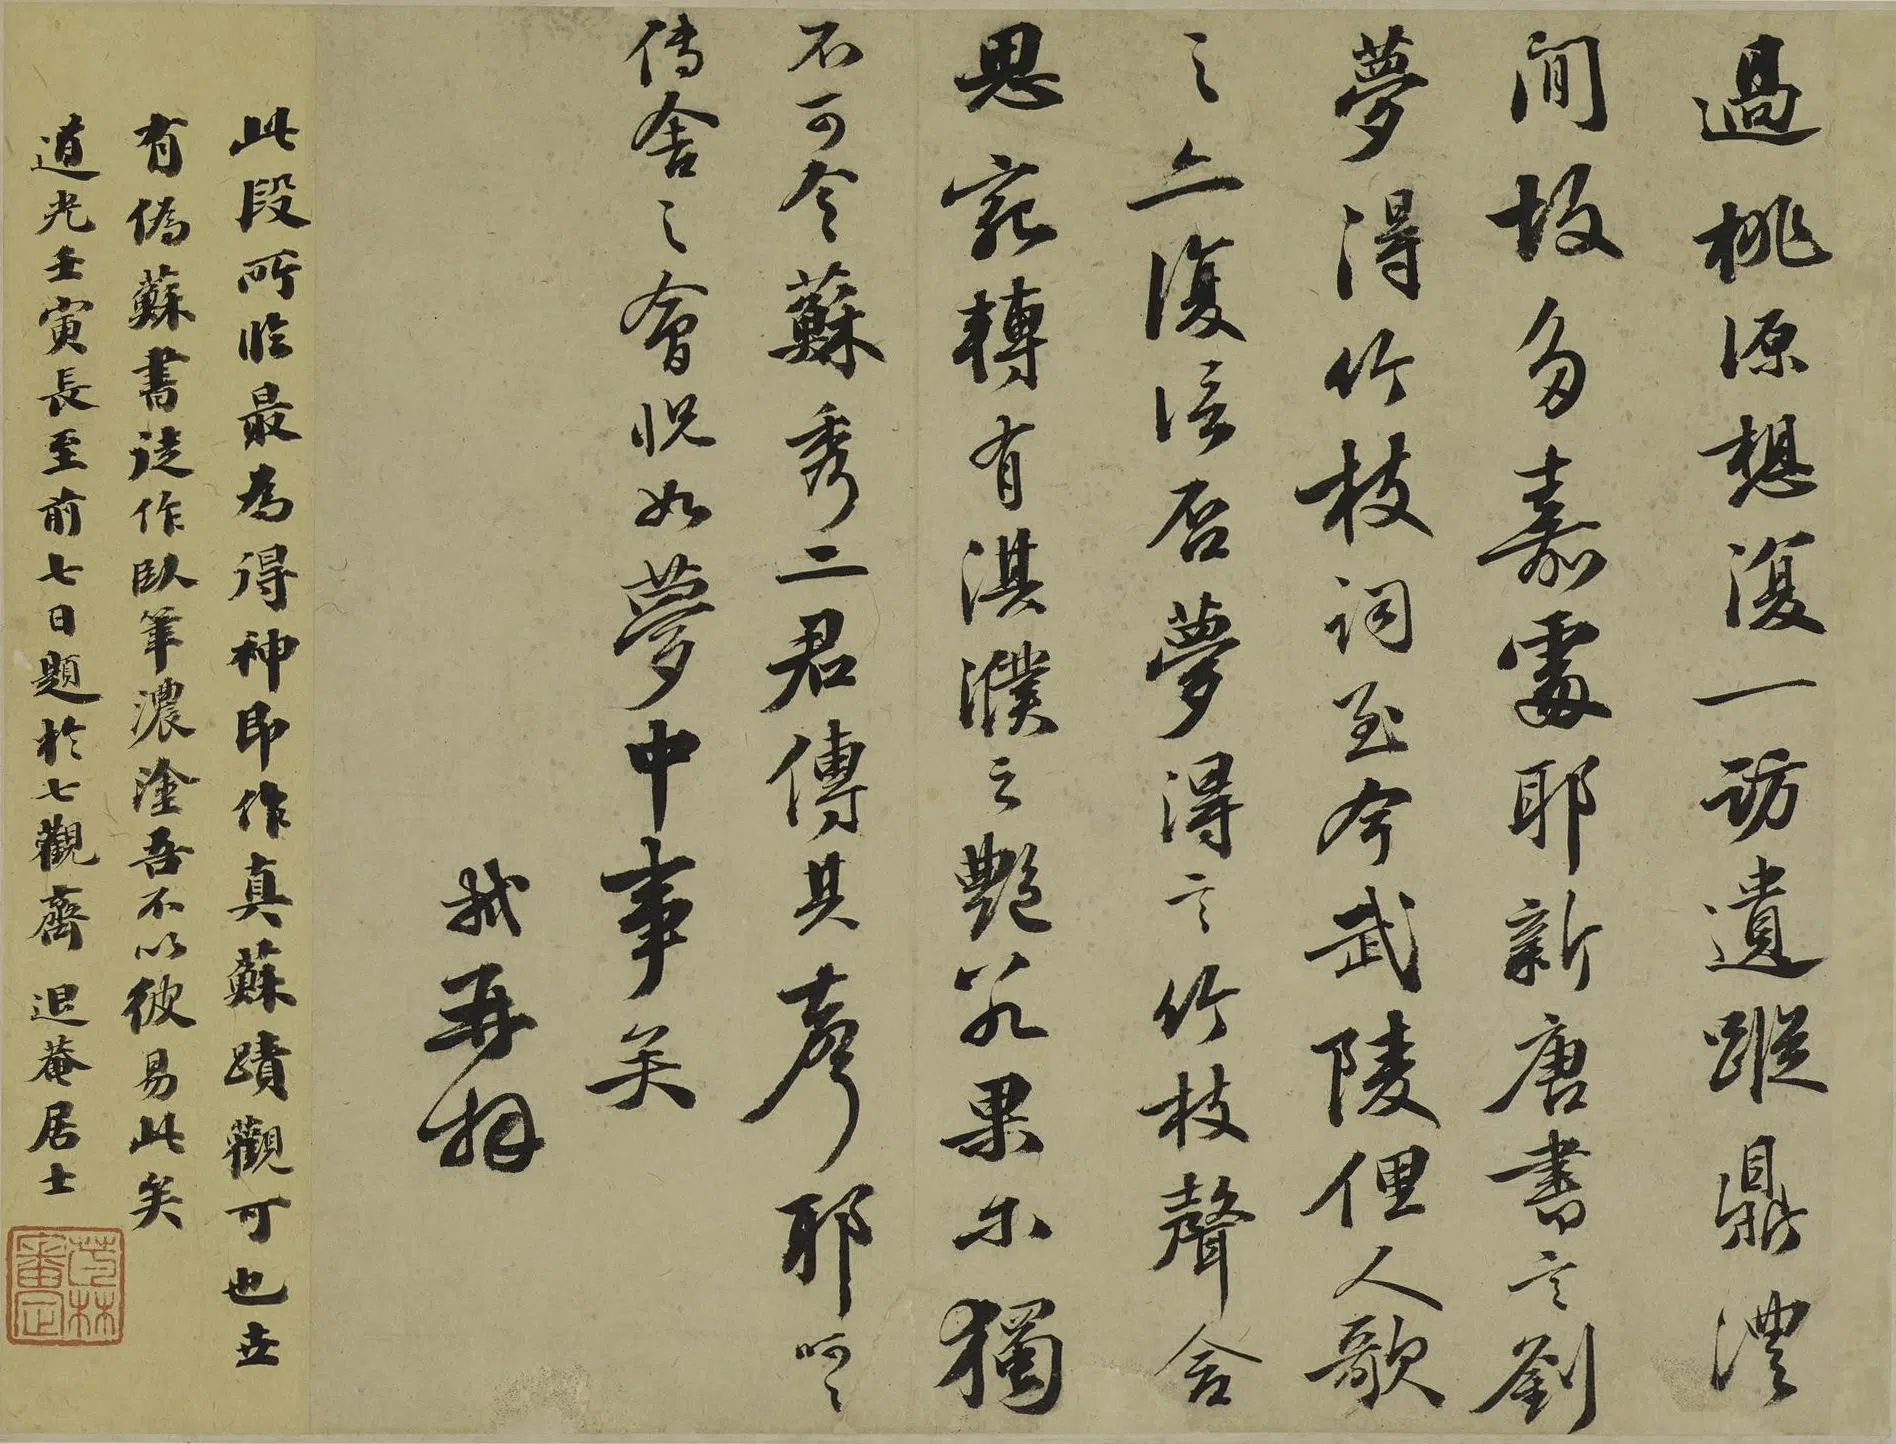 過桃源想復一訪遺蹤鼎澧
間故多嘉處耶新唐書言劉
夢得竹枝詞至今武陵俚人歌
之亦復信否夢得言竹枝聲含
思宛轉有淇濮之艷若果尔獨
不可令蘇秀二君傳其聲耶呵呵
傳舍之會怳如夢中事矣
軾再拜
此段所臨最為得神即作真蘇蹟觀可也世
有偽蘇書徒作臥筆濃塗吾不以彼易此矣
道光壬寅長至前七日題於七觀齋 退菴居士
茝林審定